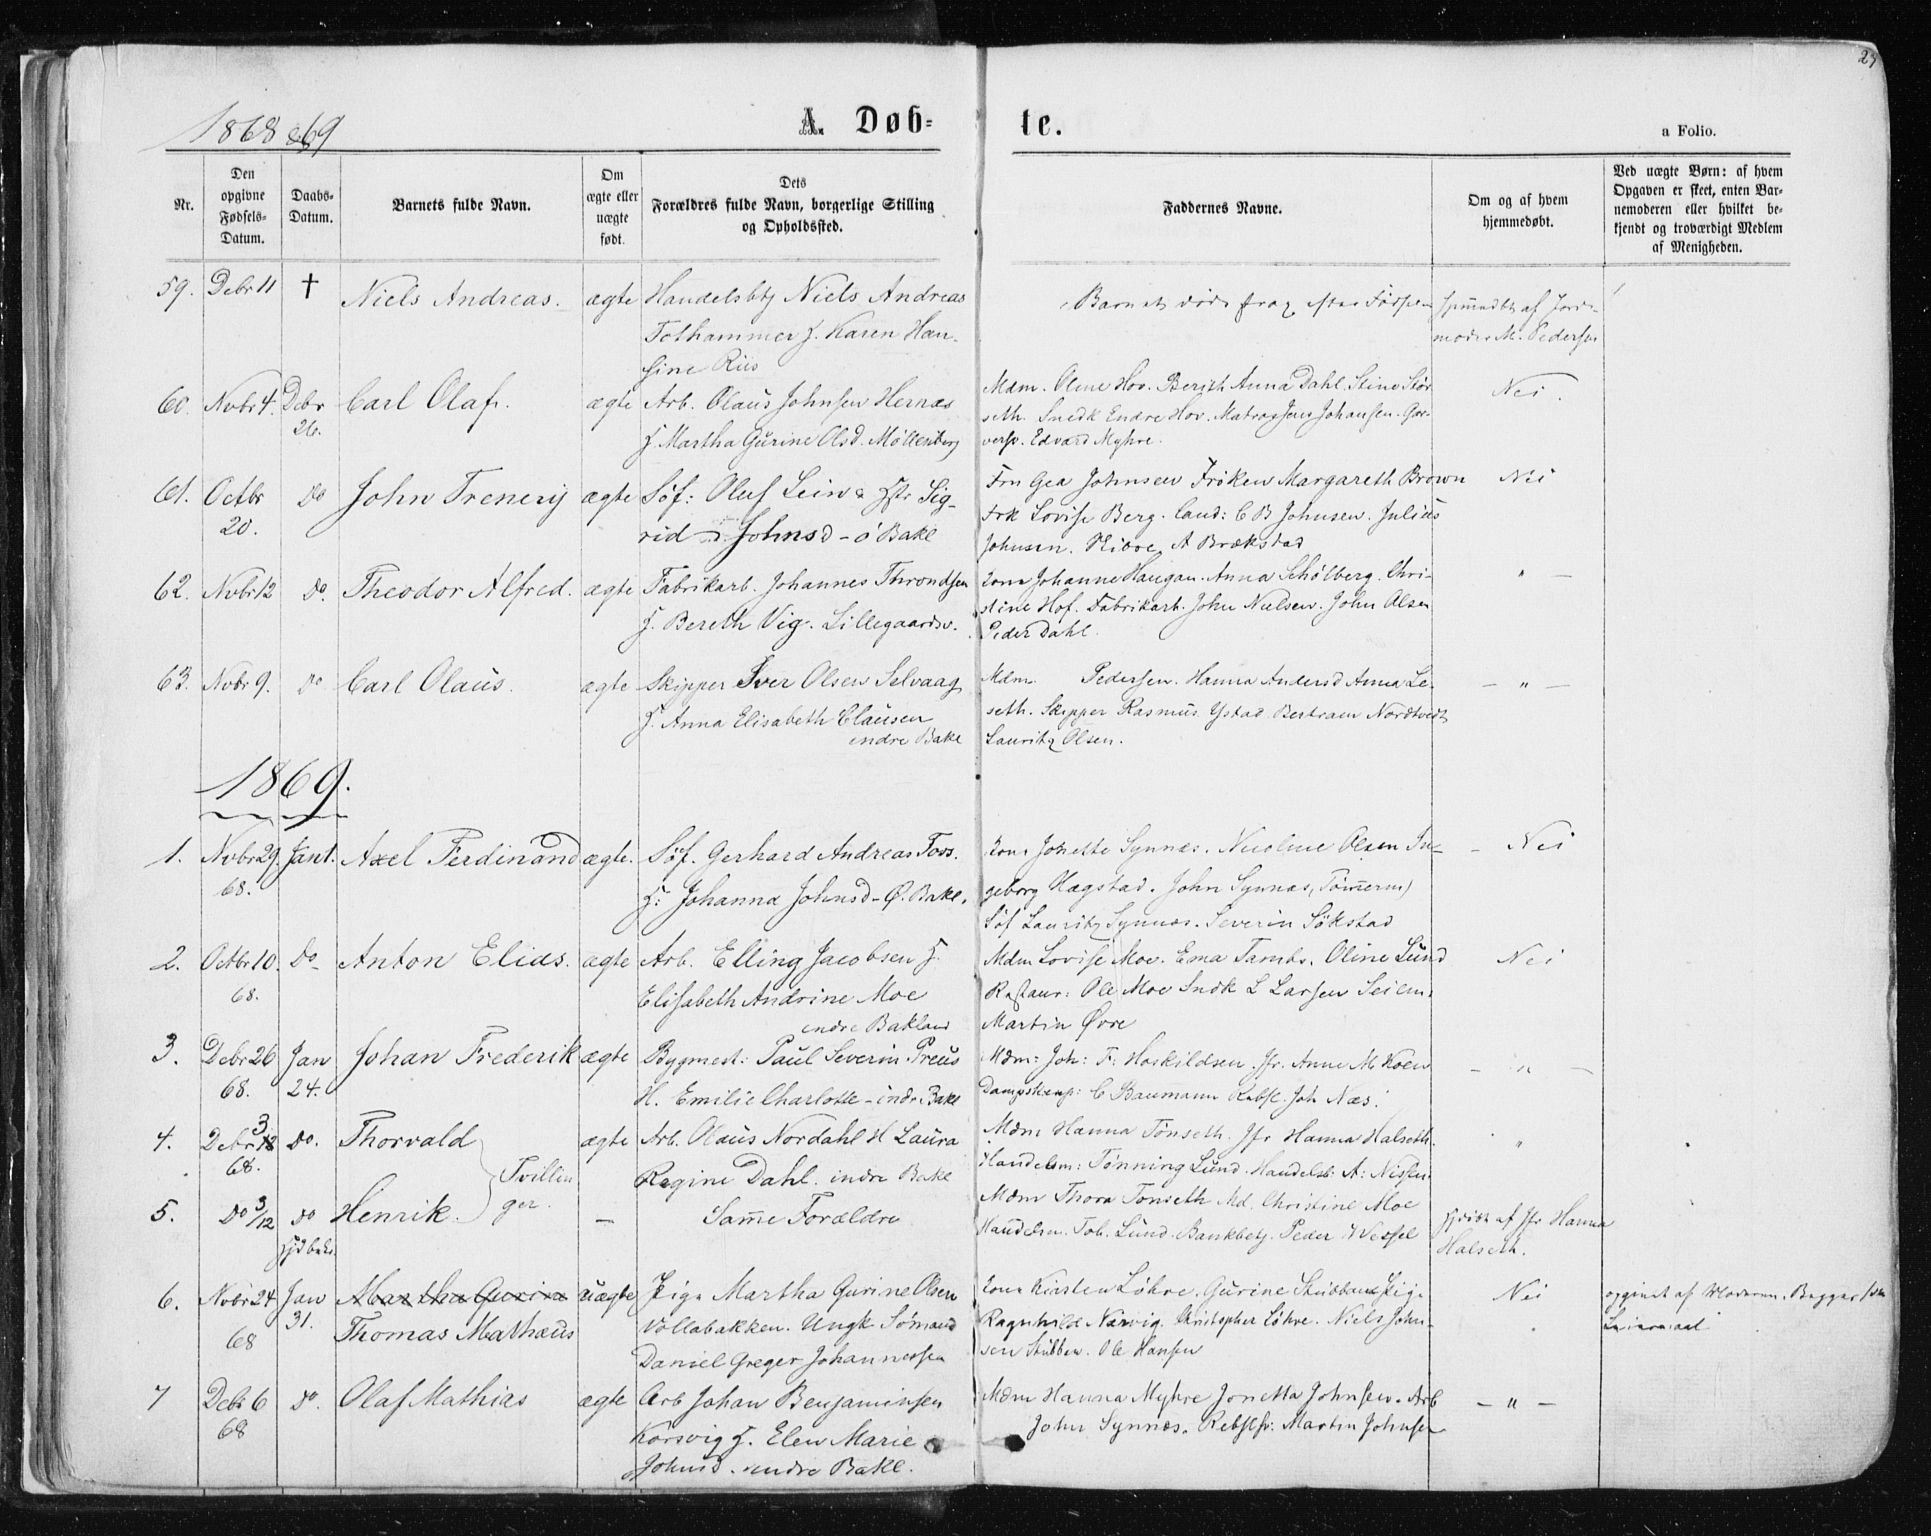 1868 & 69
A. Døb-
te.
a Folio.
Nr.
Den
opgivne
Fødsels-
Datum.
Daabs-
Datum.
Barnets fulde Navn.
Om
ægte eller
uægte
født.
Dets
Forældres fulde Navn, borgerlige Stilling
og Opholdssted.
Faddernes Navne.
Om og af hvem
hjemmedøbt.
Ved uægte Børn: af hvem
Opgaven er skeet, enten Bar-
nemoderen eller hvilket be-
kjendt og troværdigt Medlem
af Menigheden.
59. Debr 11 † Niels Andreas. ægte Handelsbtj Niels Andreas
Barnet døde strax efter Fødselen
af Jord-
Folhammer J. Karen Han-
moder M. Pedersen
sine Riis
60. Novbr 4. Debr Carl Olaf. ægte Arb. Olaus Johnsen Hernæs
26.
J. Martha Gurine Olsd. Møllenberg
Mdm. Oline Hov. Berith Anna Dahl. Stine Stör-
seth. Snedk Endre Hov. Matros Jens Johansen. Gar-
versv. Edvard Myhre.
Nei.
61. Octbr do John Trenery ægte Søf: Oluf Lein & Hstr Sig-
20.
rid Johnsd - ö Bakl
Fru Gea Johnsen Frøken Margareth Brown
Frk Lovise Berg. Cand: C B Johnsen. Julius
Johnsen. A Brækstad
Nei
62. Novbr 12 do. Theodor Alfred. ægte Fabrikarb. Johannes Throndsen
J. Bereth Vig. Lillegaardsv.
Kone Johanne Haugan. Anna Schølberg. Chri-
stine Hof. Fabrikarb. John Nielsen. John Olsen
Peder Dahl.
" -
63. Novbr 9. do Carl Olaus. ægte Skipper Iver Olsen Selvaag
J. Anna Elisabeth Clausen
indre Bakl
Mdm. Pedersen. Hanna Andersd Anna Le-
seth. Skipper Rasmus Ystad. Bertram Nordtvedt
Lauritz Olsen.
- " -
1869.
1. Novbr 29. Jan 1. Axel Ferdinand ægte. Søf. Gerhard Andreas Foss.
68.
J: Johanna Johnsd - Ø. Bakl.
Kone Jonette Synnæs. Nicoline Olsen In-
geborg Hagstad. John Synnæs, (Tømerm)
Søf Lauritz Synnæs. Severin Sökstad
- Nei
2. Octbr 10. do- Anton Elias. ægte Arb. Elling Jacobsen J.
68.
Elisabeth Andrine Moe
indre Bakland
Mdm Lovise Moe. Ema Tambs. Oline Lund
Restaur: Ole Moe Snedk L Larsen Seilm.
Martin Øvre
Nei
3. Debr 26 Jan Johan Frederik ægte Bygmest: Paul Severin Preus
68. 24.
H. Emilie Charlotte - indre Bakl
Mdm: Joh: F: Hoskildsen. Jfr. Anne M Koen
Dampskexp: C Baumann Rebsl. Joh Næs.
- " -
4. Debr 3 do. Thorvald ægte Arb. Olaus Nordahl H Laura
68.
Regine Dahl. indre Bakl
Tvillin
ger.
Mdm Hanna Tönseth. Jfr Hanna Halseth.
Handelsm: Tønning Lund. Handelsb: A: Nissen
"
5. do 3/12 do Henrik. - Same Forældre
Mdm Thora Tonseth Md. Christine Moe
Handelsm. Tob. Lund. Bankbetj. Peder Wessel
af Jfr Hanna
Halseth.
6. Novbr 24 Jan Martha Gurine uægte Pige Martha Gurine Olsen
68 31. Thomas Mathæus
Vollabakken. Ungk Sømand
Daniel Greger Johannessen
Kone Kirsten Löhre. Gurine Stubban Pige
Ragnhild Narvig. Christopher Löhre. Niels John-
sen Stubban. Ole Hansen
Nei
opgivet af Moderen. Begges 1ste
Leiermaal
7 Debr 6 do. Olaf Mathias ægte Arb Johan Benjaminsen
68
Korsvig J. Elen Marie
Johnsd. indre Bakl.
Mdm Hanna Myhre Jonetta Johnsen. Arb
John Synnæs. Rebslsv: Martin Johnsen
- " -